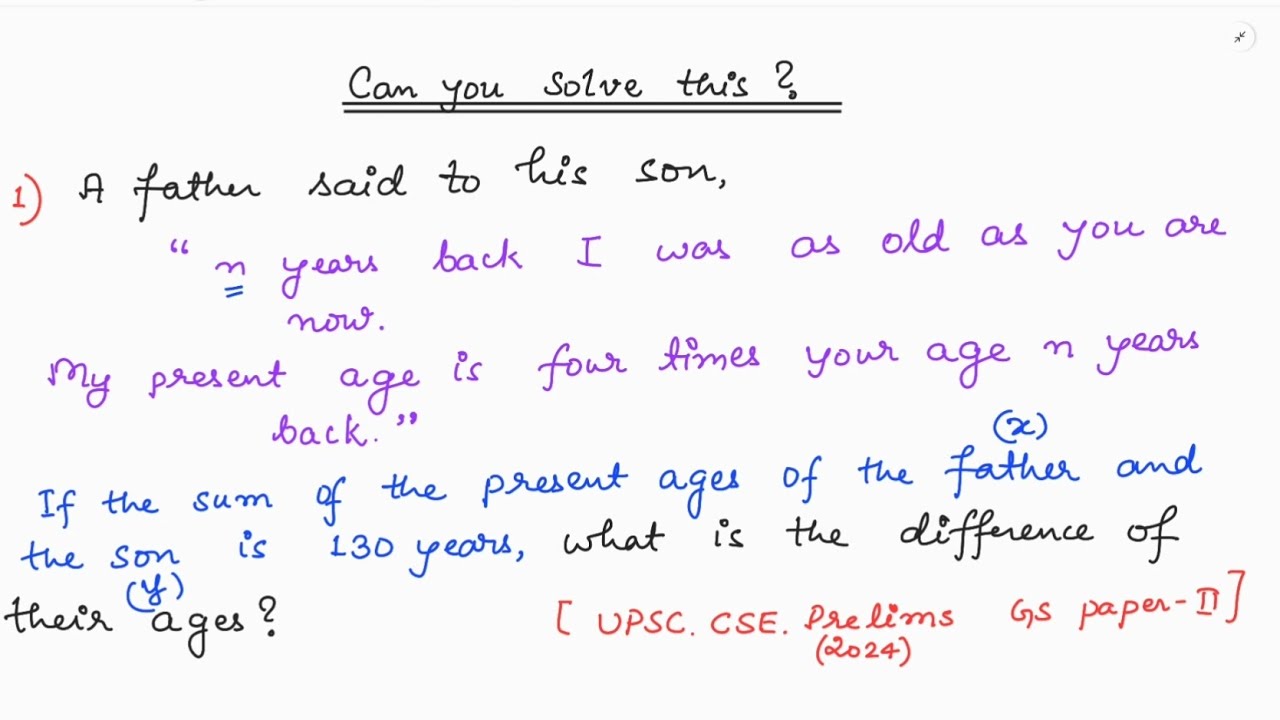 Can you solve this?
1) A father said to his son,
“n years back I was as old as you are
now.
My present age is four times your age n years
back.”
(x)
If the sum of the present ages of the father and
the son is 130 years, what is the difference of
(y)
their ages?
[UPSC. CSE. Prelims GS paper-II]
(2024)